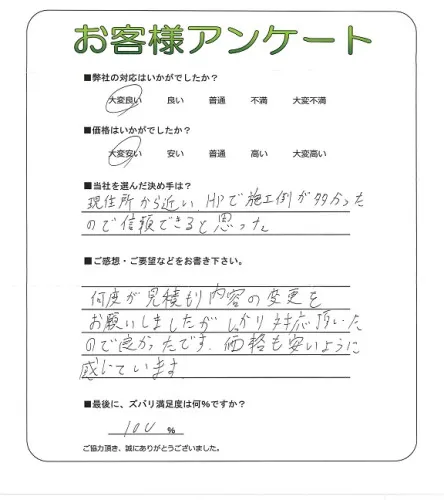 お客様アンケート
■弊社の対応はいかがでしたか?
大変良い 良い 普通 不満 大変不満
■価格はいかがでしたか?
大変安い 安い 普通 高い 大変高い
■当社を選んだ決め手は?
現住所から近い、HPで施工例が多かった
ので信頼できると思った
■ご感想・ご要望などをお書き下さい。
何度か見積もり内容の変更を
お願いしましたがしっかり対応頂いた
ので良かったです、価格も安いように
感じています
■最後に、ズバリ満足度は何%ですか?
100 %
ご協力頂き、誠にありがとうございました。